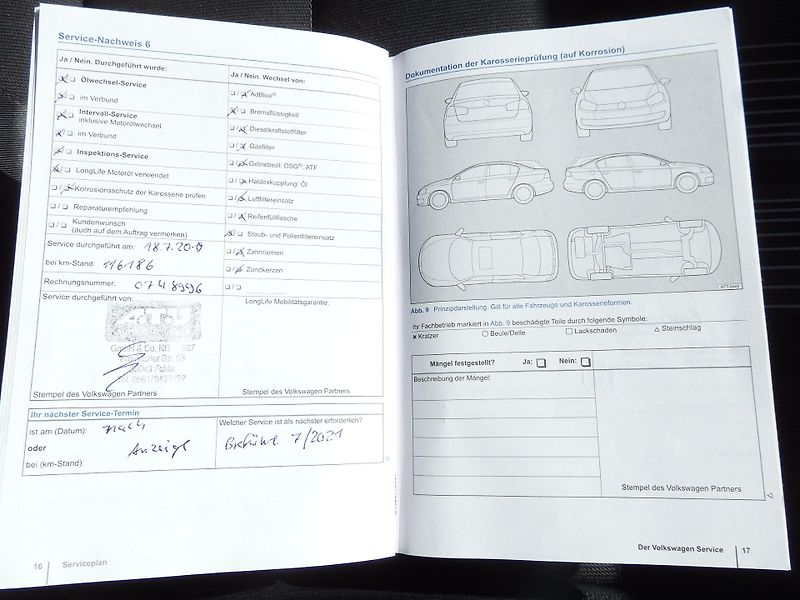 Service-Nachweis 6
Ja / Nein. Durchgeführt wurde:
Ölwechsel-Service
im Verbund
Intervall-Service
inklusive Motorölwechsel
im Verbund
Inspektions-Service
LongLife Motoröl verwendet
Korrosionsschutz der Karosserie prüfen
Reparaturempfehlung
Kundenwunsch
(auch auf dem Auftrag vermerken)
Service durchgeführt am: 18.7.20
bei km-Stand: 116186
Rechnungsnummer: 0748996
Service durchgeführt von:
GmbH & Co. KG 627
Fulda
Stempel des Volkswagen Partners
Ja / Nein. Wechsel von:
AdBlue®
Bremsflüssigkeit
Dieselkraftstofffilter
Gasfilter
Getriebeöl: DSG®, ATF
Haldexkupplung: Öl
Luftfiltereinsatz
Reifenfüllflasche
Staub- und Pollenfiltereinsatz
Zahnriemen
Zündkerzen
LongLife Mobilitätsgarantie:
Stempel des Volkswagen Partners
Ihr nächster Service-Termin
ist am (Datum): nach
oder Anzeige
bei (km-Stand):
Welcher Service ist als nächster erforderlich?
7/2021
16 Serviceplan
Dokumentation der Karosserieprüfung (auf Korrosion)
Abb. 9 Prinzipdarstellung. Gilt für alle Fahrzeuge und Karosserieformen.
Ihr Fachbetrieb markiert in Abb. 9 beschädigte Teile durch folgende Symbole:
× Kratzer ○ Beule/Delle □ Lackschaden △ Steinschlag
Mängel festgestellt? Ja: □ Nein: □
Beschreibung der Mängel:
Stempel des Volkswagen Partners
Der Volkswagen Service 17